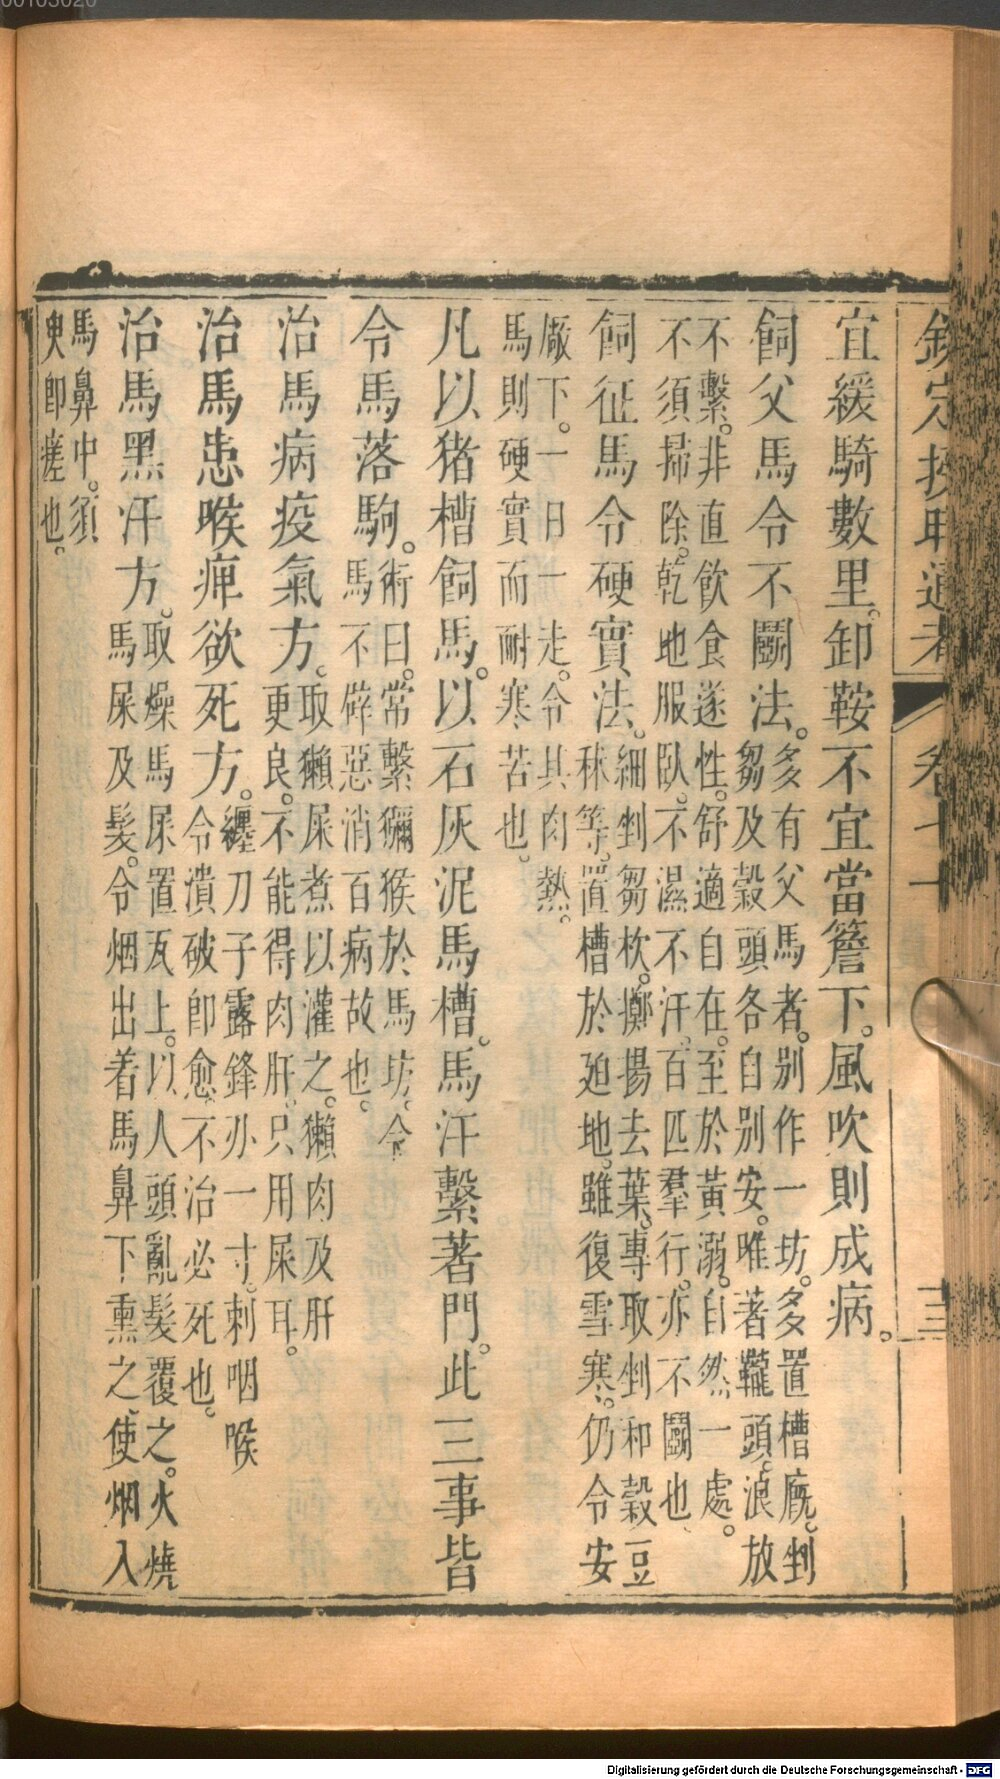 宜緩騎數里。卸鞍不宜當簷下。風吹則成病。
飼父馬令不鬬法。多有父馬者。別作一坊。多置槽廐。剉
芻及穀頭各自別安。唯著鞴頭。浪放
不繫。非直飲食遂性。舒適自在。至於黃溺。自然一處。
不須掃除。乾地服臥。不濕不汗。百匹羣行。亦不鬬也。
飼征馬令硬實法。細剉芻杴。擲揚去葉。專取剉和穀豆
秣等。置槽於迫地。雖復雪寒。仍令安
厰下。一日一走。令其肉熱。
馬則硬實而耐寒苦也。
凡以猪槽飼馬。以石灰泥馬槽。馬汗繫著門。此三事皆
令馬落駒。術曰。常繫獼猴於馬坊。令
馬不辟惡消百病故也。
治馬病疫氣方。取獺屎煮以灌之。獺肉及肝
更良。不能得肉肝。只用屎耳。
治馬患喉痺欲死方。纏刀子露鋒刃一寸。刺咽喉
令潰破即愈。不治必死也。
治馬黑汗方。取燥馬屎置瓦上。以人頭亂髮覆之。火燒
馬屎及髮。令烟出着馬鼻下熏之。使烟入
馬鼻中。須
臾即瘥也。
欽定授時通考
三
Digitalisierung gefördert durch die Deutsche Forschungsgemeinschaft - DFG